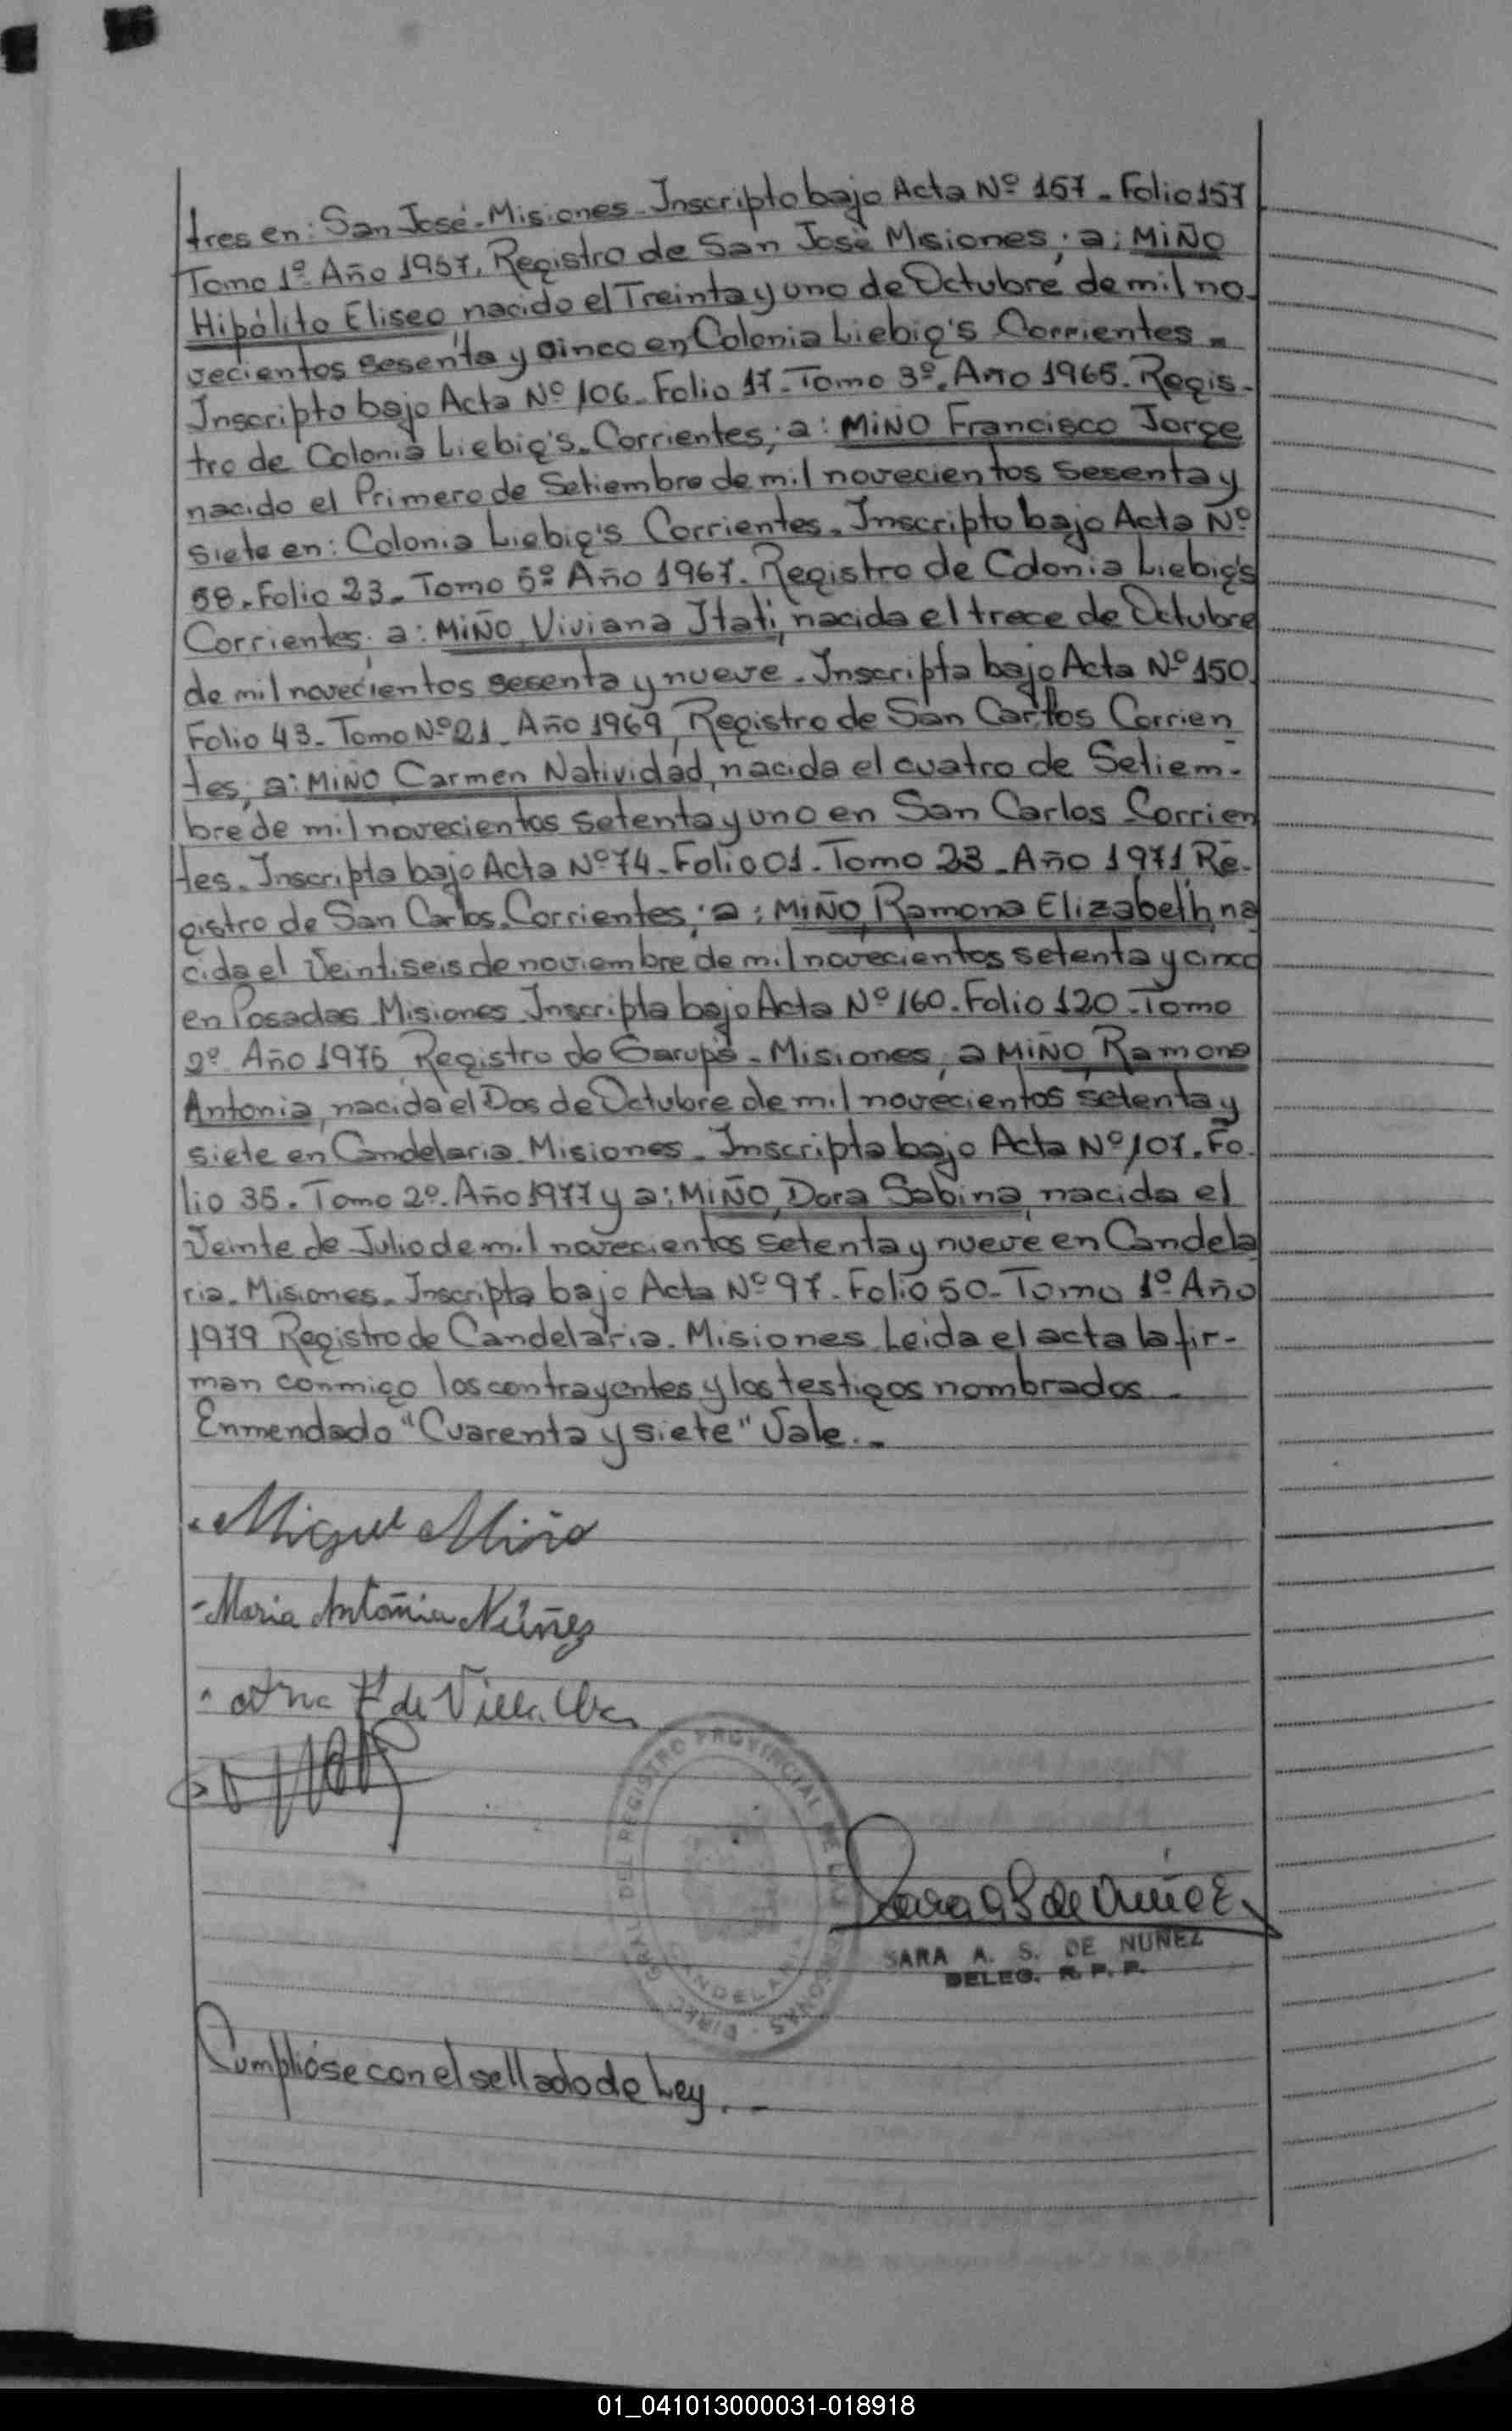 tres en: San José-Misiones-Inscripto bajo Acta Nº 157-Folio 157
Tomo 1º Año 1957, Registro de San José Misiones; a: MiÑO
Hipólito Eliseo, nacido el Treinta y uno de Octubre de mil no-
vecientos sesenta y cinco en Colonia Liebig's Corrientes-
Inscripto bajo Acta Nº 106-Folio 17-Tomo 3º. Año 1965. Regis-
tro de Colonia Liebig's-Corrientes; a: MiÑO Francisco Jorge
nacido el Primero de Setiembre de mil novecientos sesenta y
siete en: Colonia Liebig's Corrientes. Inscripto bajo Acta Nº
58.Folio 23. Tomo 5º Año 1967. Registro de Colonia Liebig's
Corrientes; a: MiÑO, Viviana Itati, nacida el trece de Octubre
de mil novecientos sesenta y nueve. Inscripta bajo Acta Nº 150
Folio 43-Tomo Nº 21-Año 1969, Registro de San Carlos Corrien
tes; a: MiÑO Carmen Natividad, nacida el cuatro de Setiem-
bre de mil novecientos setenta y uno en San Carlos Corrien
tes. Inscripta bajo Acta Nº 74-Folio 01-Tomo 23-Año 1971, Re-
gistro de San Carlos.Corrientes; a: MiÑO, Ramona Elizabeth, na
cida el Veintiseis de noviembre de mil novecientos setenta y cinco
en Posadas Misiones Inscripta bajo Acta Nº 160-Folio 120-Tomo
2º Año 1975, Registro de Garupá-Misiones; a MiÑO, Ramona
Antonia, nacida el Dos de Octubre de mil novecientos setenta y
siete en Candelaria. Misiones. Inscripta bajo Acta Nº 107. Fo-
lio 35. Tomo 2º. Año 1977 y a: MiÑO, Dora Sabina, nacida el
Veinte de Julio de mil novecientos setenta y nueve en Candela
ria. Misiones. Inscripta bajo Acta Nº 97-Folio 50-Tomo 1º Año
1979 Registro de Candelaria. Misiones Leida el acta la fir-
man conmigo los contrayentes y los testigos nombrados-
Enmendado "Cuarenta y siete" Vale.-
Miguel Miño
-Maria Antoñia Núñez
de Villalba
DIREC. GRAL. DEL REGISTRO PROVINCIAL DE LAS PERSONAS -
CANDELARIA
Sara A S de Nuñez
SARA A. S. DE NUÑEZ
DELEG. R. P. P.
Cumplióse con el sellado de Ley.-
01_041013000031-018918